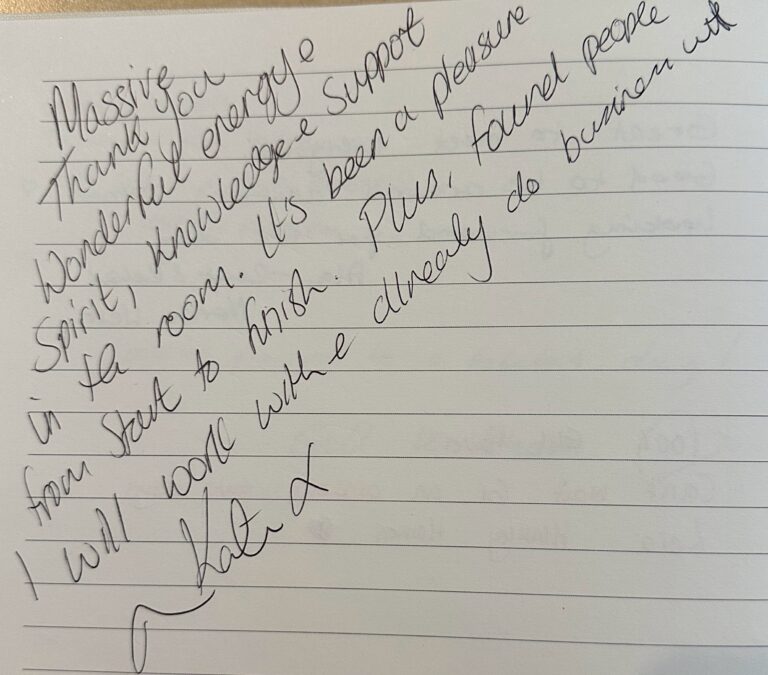 Massive
Thank you
Wonderful energy e
Spirit, knowledge e support
in the room. It's been a pleasure
from start to finish. Plus, found people
I will work with e already do business with
Katie x